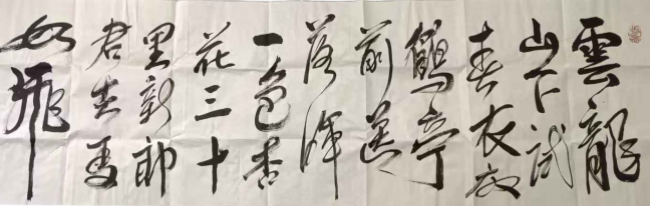 雲龍
山下試
春衣放
鶴亭
前送
落暉
一色杏
花三十
里新郎
君走馬
如飛